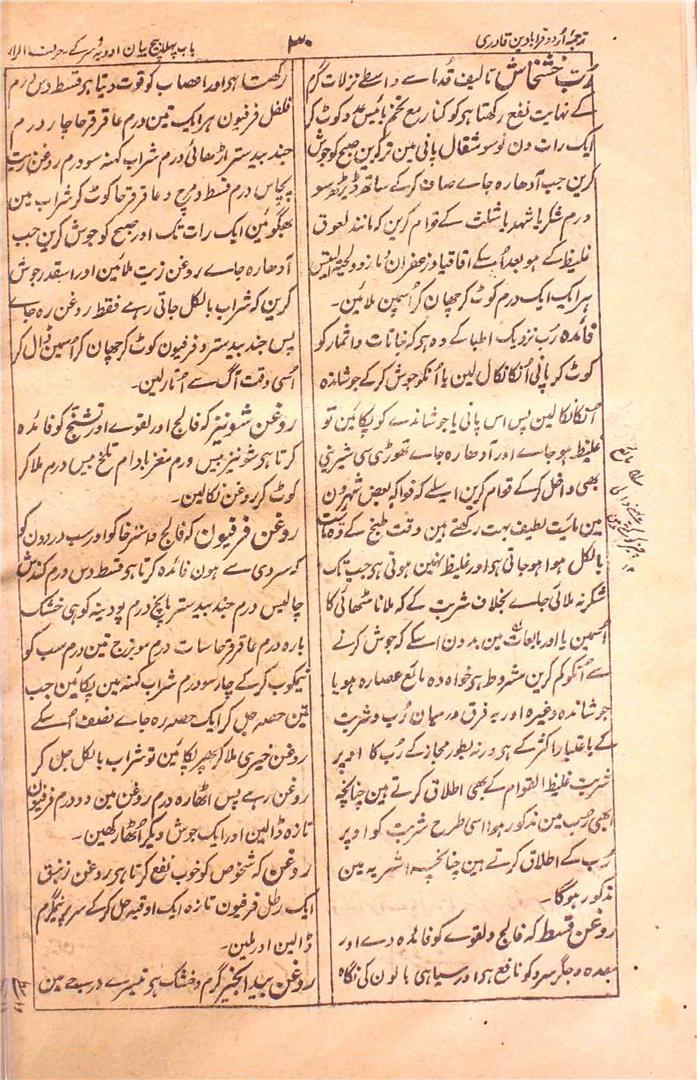 ترجمۂ اردو قرابادین قادری
۳۰
باب پہلا بیچ بیان ادویہ سر کے حرف الرا
رُب خشخاش تالیف قدما سے واسطے نزلات گرم
کے نہایت نفع رکھتا ہو کوکنار مع تخم بائیس عدد کوٹ کر
ایک رات دن نوسو مثقال پانی مین تر کرین صبح کو جوش
کرین جب آدھا رہ جاے صاف کر کے ساتھ ڈیڑھ سو
درم شکر یا شہد یا مثلث کے قوام کرین کہ مانند لعوق
غلیظ کے ہو بعد اُسکے اقاقیا و زعفران و مازو و لحیۃ التیس
ہر ایک ایک درم کوٹ کر چھان کر اُسمین ملائین۔
فائدہ رُب نزدیک اطبا کے وہ ہو کہ نباتات و اثمار کو
کوٹ کر پانی اُنکا نکال لین یا اُنکو جوش کر کے جوشاندہ
اُنکا نکالین پس اس پانی یا جوشاندے کو پکائین تو
غلیظ ہو جاے اور آدھا رہ جاے تھوڑی سی شیرینی
بھی داخل کر کے قوام کرین اسیلے کہ فواکہ بعض شہرون
مین مائیت لطیف بہت رکھتے ہین وقت طبخ کے وہ مائیت
بالکل ہوا ہو جاتی ہو اور غلیظ نہین ہوتی ہو جب تک
شکر نہ ملائی جاے بخلاف شربت کے کہ ملانا مٹھائی کا
اُسمین یا اور مائعات مین بدون اسکے کہ جوش کرنے
سے اُنکو کم کرین مشروط ہو خواہ وہ مائع عصارہ ہو یا
جوشاندہ وغیرہ اور یہ فرق درمیان رُب و شربت
کے باعتبار اکثر کے ہو ورنہ بطور مجاز کے رُب کا اوپر
شربت غلیظ القوام کے بھی اطلاق کرتے ہین چنانچہ
ابھی رُب مین مذکور ہوا اسی طرح شربت کو اوپر
رُب کے اطلاق کرتے ہین چنانچہ اشربہ مین
مذکور ہوگا۔
روغن قسط کہ فالج و لقوے کو فائدہ دے اور
معدہ و جگر سرد کو نافع ہو اور سیاہی بالون کی نگاہ
رکھتا ہو اور اعصاب کو قوت دیتا ہو قسط دس درم
فلفل فرفیون ہر ایک تین درم عاقرقرحا چار درم
جند بیدستر اڑھائی درم شراب کہنہ سو درم روغن زیت
پچاس درم قسط و مرچ و عاقرقرحا کوٹ کر شراب مین
بھگوئین ایک رات تک اور صبح کو جوش کرین جب
آدھا رہ جاے روغن زیت ملائین اور اسقدر جوش
کرین کہ شراب بالکل جاتی رہے فقط روغن رہ جاے
پس جند بیدستر و فرفیون کوٹ کر چھان کر اُسمین ڈال کر
اُسی وقت آگ سے اُتار لین۔
روغن شونیز کہ فالج اور لقوے اور تشنج کو فائدہ
کرتا ہو شونیز بیس درم مغز بادام تلخ بیس درم ملا کر
کوٹ کر روغن نکالین۔
روغن فرفیون کہ فالج و استرخا کو اور سب دردون کو
کہ سردی سے ہون فائدہ کرتا ہو قسط دس درم کندش
چالیس درم جند بیدستر پانچ درم پودینہ کوہی خشک
بارہ درم عاقرقرحا سات درم مویزج تین درم سب کو
نیمکوب کر کے چار سو درم شراب کہنہ مین پکائین جب
تین حصہ جل کر ایک حصہ رہ جاے نصف اُسکے
روغن خیری ملا کر پھر پکائین تو شراب بالکل جل کر
روغن رہے پس اٹھارہ درم روغن مین دو درم فرفیون
تازہ ڈالین اور ایک جوش دیکر اُٹھا رکھین۔
روغن کہ شخوص کو خوب نفع کرتا ہو روغن زنبق
ایک رطل فرفیون تازہ ایک اوقیہ حل کر کے سر پر نیمگرم
ڈالین اور ملین۔
روغن بید انجیر گرم و خشک ہو تیسرے درجے مین